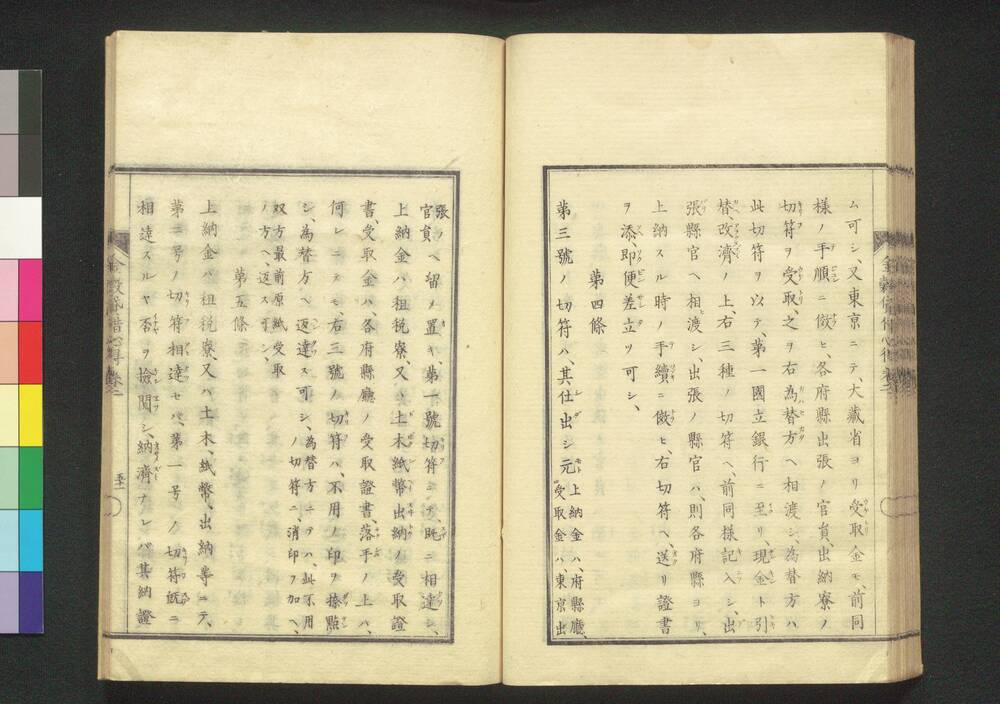 ム可シ、又東京ニテ、大藏省ヨリ受取金モ、前同
樣ノ手順ニ傚ヒ、各府縣出張ノ官員、出納寮ノ
切符ヲ受取、之ヲ右為替方ヘ相渡シ、為替方ハ
此切符ヲ以テ、第一國立銀行ニ至リ、現金ト引
替、改濟ノ上、右三種ノ切符ヘ、前同樣記入シ、出
張縣官ヘ相渡シ、出張ノ縣官ハ、則各府縣ヨリ、
上納スル時ノ手續ニ傚ヒ、右切符ヘ、送リ證書
ヲ添、即便差立ツ可シ、
第四條
第三號ノ切符ハ、其仕出シ元
上納金ハ、府縣廳、
受取金ハ、東京出
張ノ
官員
ヘ留メ置キ、第一號切符ニテ、既ニ相達シ、
上納金ハ、租税寮、又ハ土木紙幣出納ノ受取證
書、受取金ハ、各府縣廳ノ受取證書、落手ノ上ハ、
何レニテモ、右三號ノ切符ハ、不用ノ印ヲ捺㸃
シ、為替方ヘ返達ス可シ、為替方ニヲハ、此不用
ノ切符ニ、消印ヲ加ヘ、
双方最前原紙受取
ノ方ヘ、返ス可シ、
第五條
上納金ハ、租税寮、又ハ土木、紙幣、出納等ニテ、
第二号ノ切符相達セバ、第一号ノ切符既ニ
相違スルヤ否ヲ撿閲シ、納濟ナレバ其納證